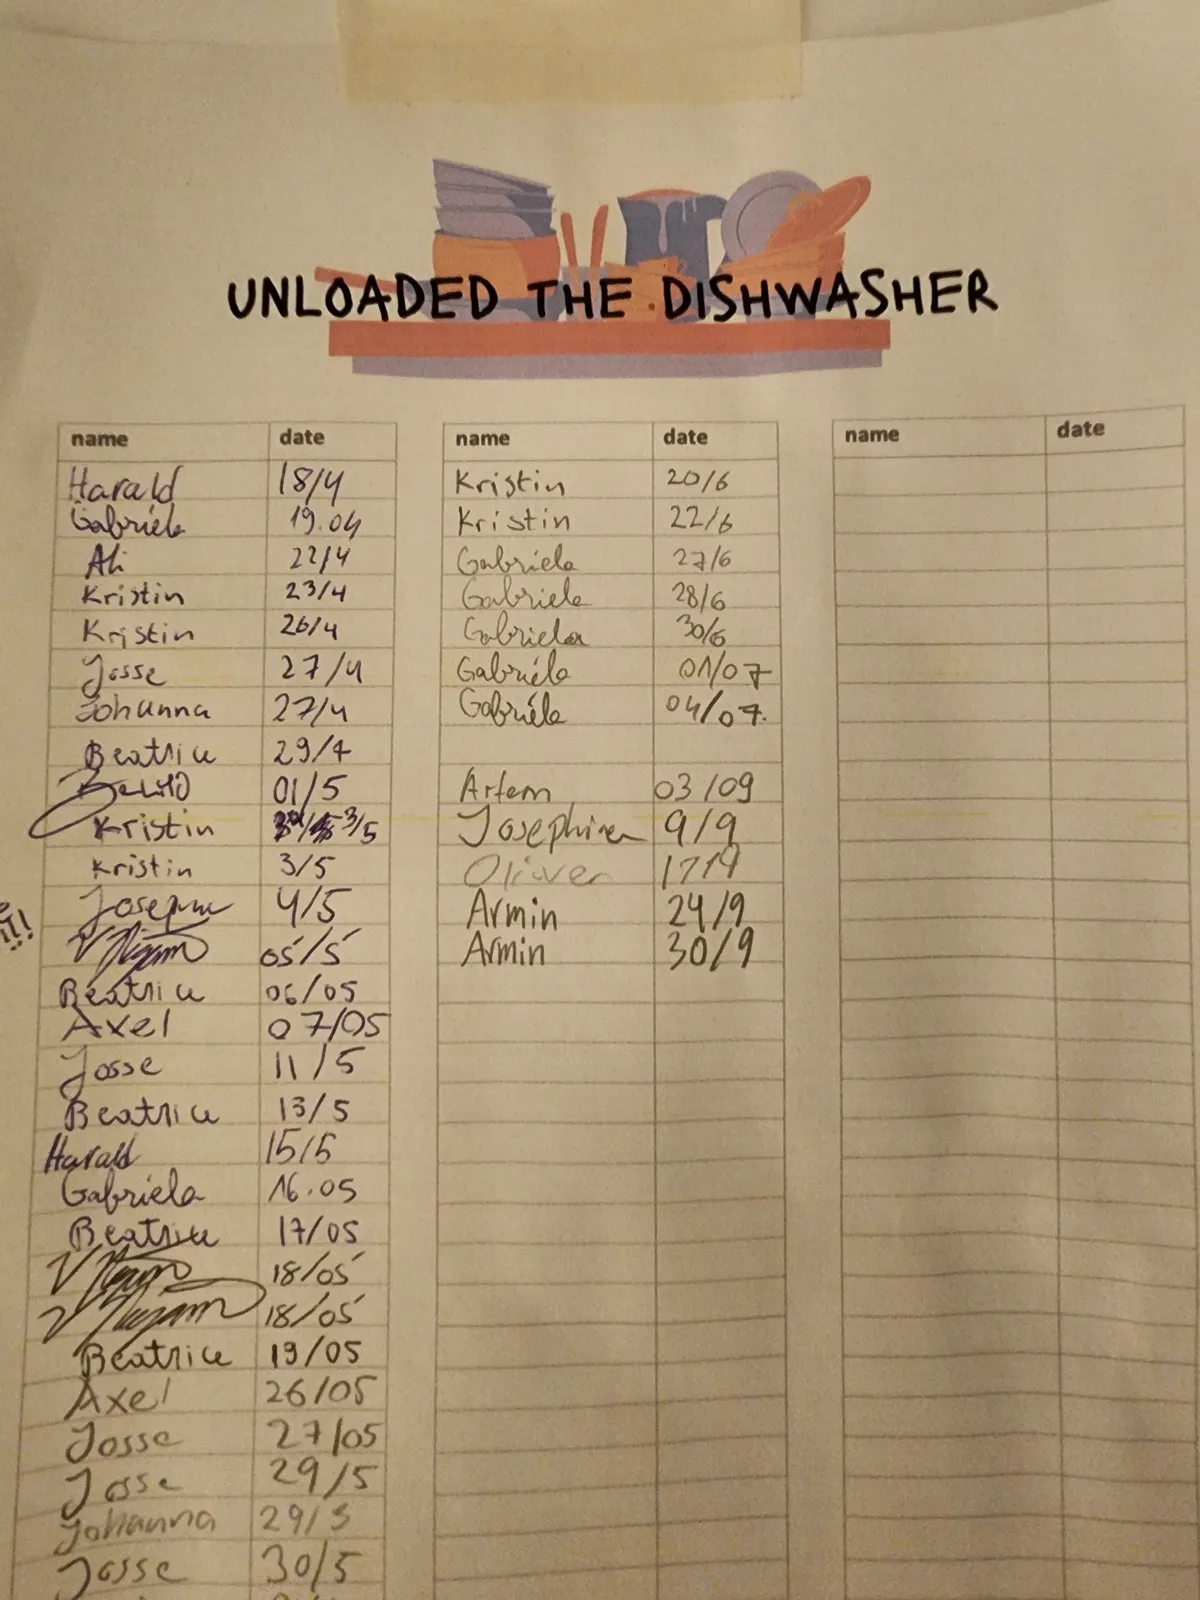 UNLOADED THE DISHWASHER
name date
Harald 18/4
Gabriela 19.04
Ali 22/4
Kristin 23/4
Kristin 26/4
Josse 27/4
Johanna 27/4
Beatrice 29/4
01/5
Kristin 3/5
Kristin 3/5
Josephine 4/5
05/5
Beatrice 06/05
Axel 07/05
Josse 11/5
Beatrice 13/5
Harald 15/5
Gabriela 16.05
Beatrice 17/05
18/05
18/05
Beatrice 19/05
Axel 26/05
Josse 27/05
Josse 29/5
Johanna 29/5
Josse 30/5
name date
Kristin 20/6
Kristin 22/6
Gabriela 27/6
Gabriela 28/6
Gabriela 30/6
Gabriela 01/07
Gabriela 04/07.
Artem 03/09
Josephine 9/9
Oliver 17/9
Armin 24/9
Armin 30/9
name date